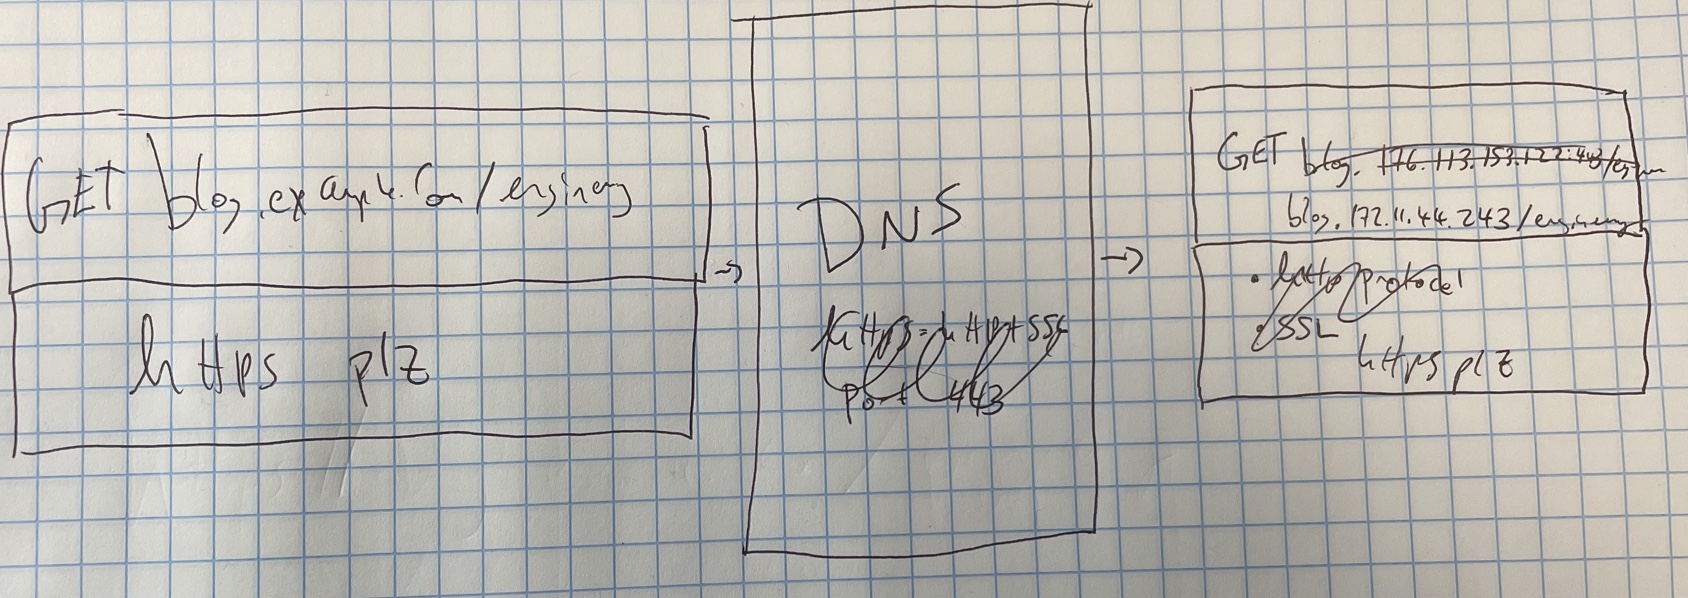 GET blog.example.com/enginery
https plz
→
DNS
https=http+SSL
port 443
→
GET blog. 176.113.153.122:443/
blog.172.11.44.243/
• http protocol
• SSL
https plz